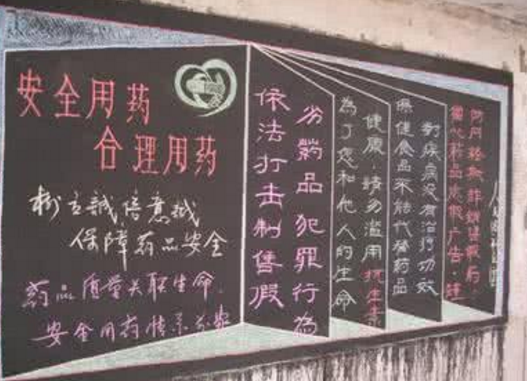 安全用药
合理用药
树立誠信意识
保障药品安全
药品质量关联生命
安全用药情系万家
依法打击制售假
劣药品犯罪行為
為了您和他人的生命
健康请勿滥用抗生素
保健食品不能代替药品
对疾病没有治疗功效
药品虚假广告·谨